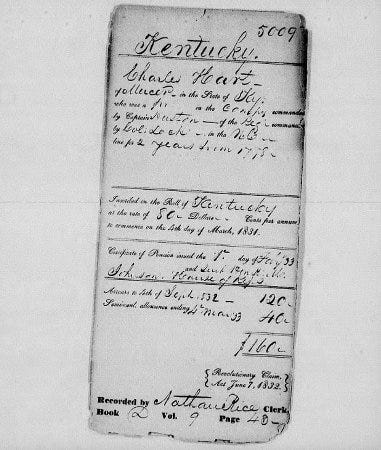 5009
Kentucky.
Charles Hart
of Mercer in the State of Ky.
who was a Pr. in the Company commanded
by Captain of the Reg commanded
by Col. Lock in the
line for 2 years from 1778
Inscribed on the Roll of Kentucky
at the rate of 80 Dollars Cents per annum
to commence on the 4th day of March, 1831.
Certificate of Pension issued the 1st day of Feby 33
and sent
Johnson. House of Reps
Arrears to 4th of Sept. 1832 120
Semi-anl. allowance ending 4 Mar 33 40
$160
Revolutionary Claim,
Act June 7, 1832.
Recorded by Nathan Rice Clerk,
Book D Vol. 9 Page 48